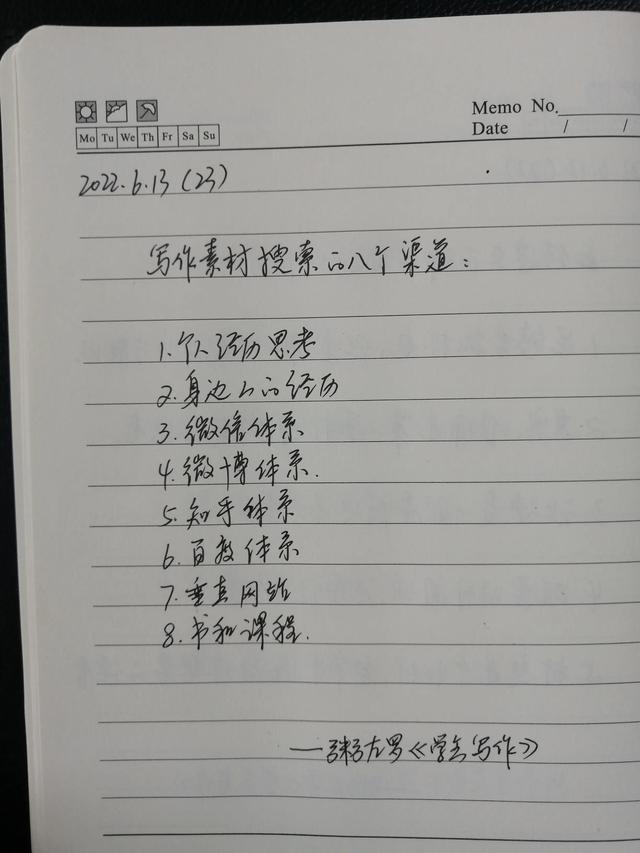 Memo No.
Mo Tu We Th Fr Sa Su
Date / /
2022.6.13(23)
写作素材搜索的八个渠道:
1.个人经历思考
2.身边人的经历
3.微信体系
4.微博体系.
5.知乎体系
6.百度体系
7.垂直网站
8.书和课程.
——粥左罗《学会写作》